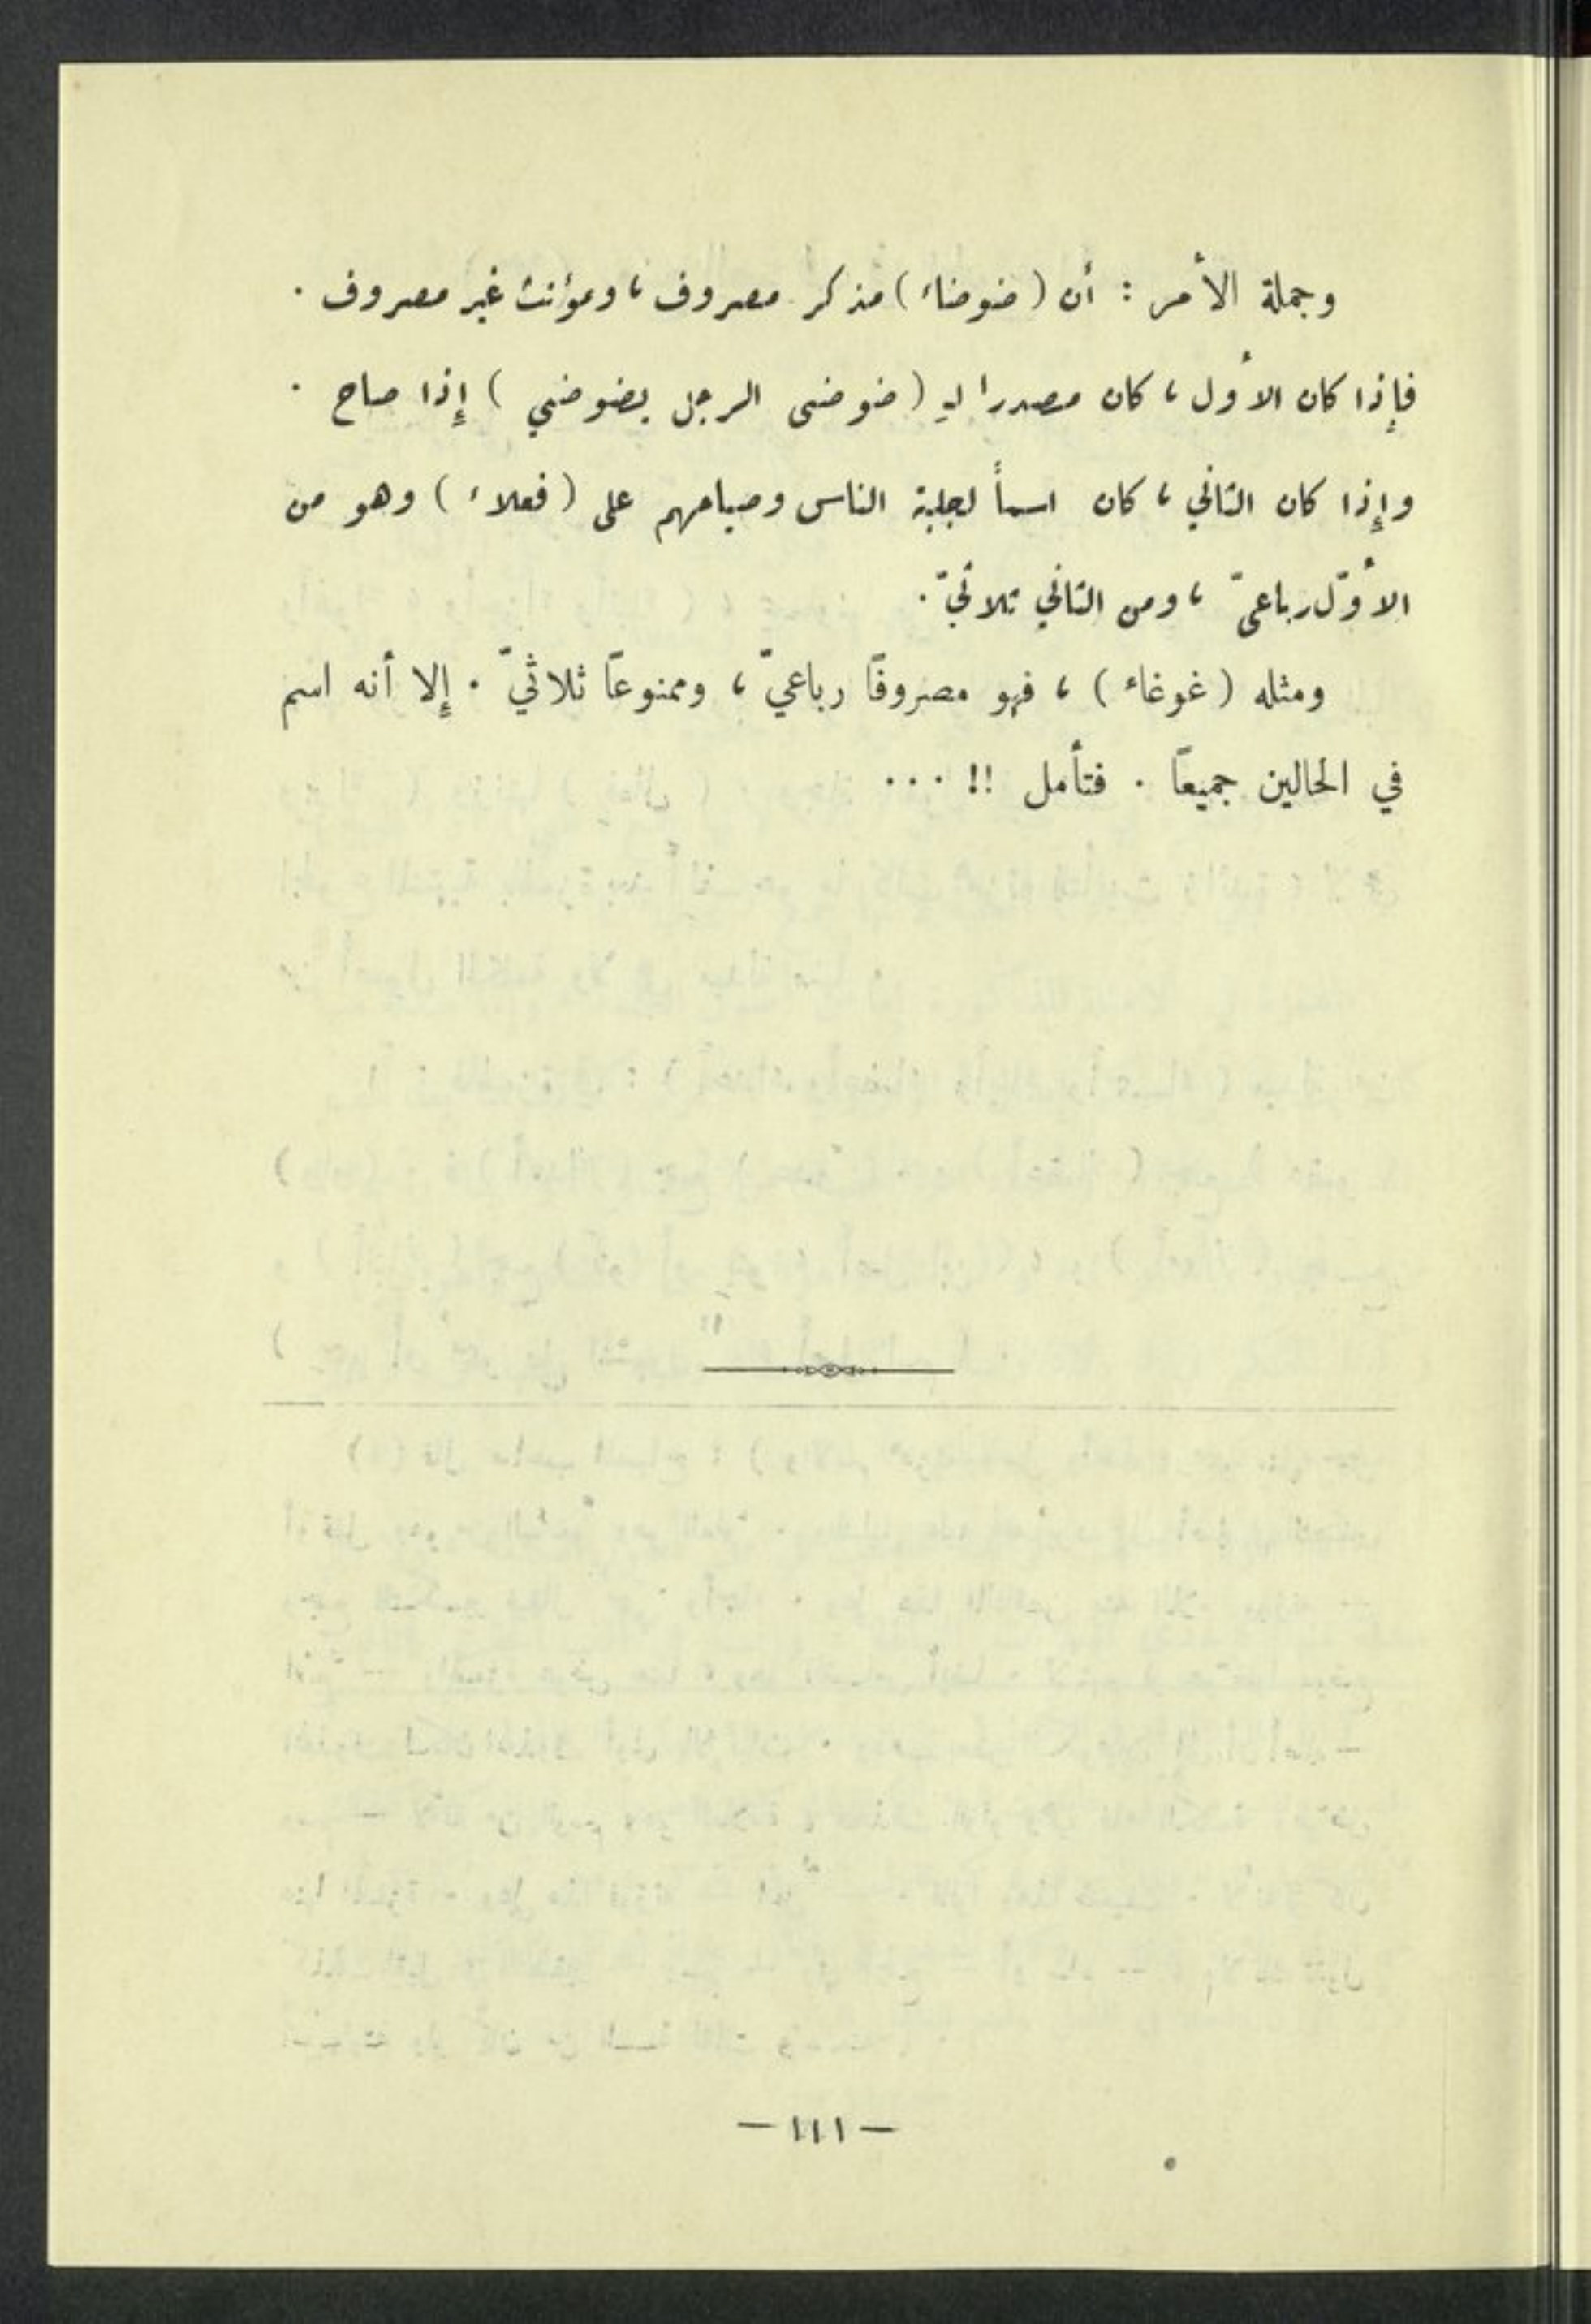 وجملة الأمر : أن ( ضوضاء ) مذكر مصروف ، ومؤنث غير مصروف .
فإذا كان الأول ، كان مصدرا لـ ( ضوضى الرجل يضوضي ) إذا صاح .
وإذا كان الثاني ، كان اسماً لجلبة الناس وصياحهم على ( فعلاء ) وهو من
الأوّل رباعيّ ، ومن الثاني ثلاثيّ .
ومثله ( غوغاء ) ، فهو مصروفاً رباعيّ ، وممنوعاً ثلاثيّ . إلا أنه اسم
في الحالين جميعاً . فتأمل !! ...
— ١١١ —